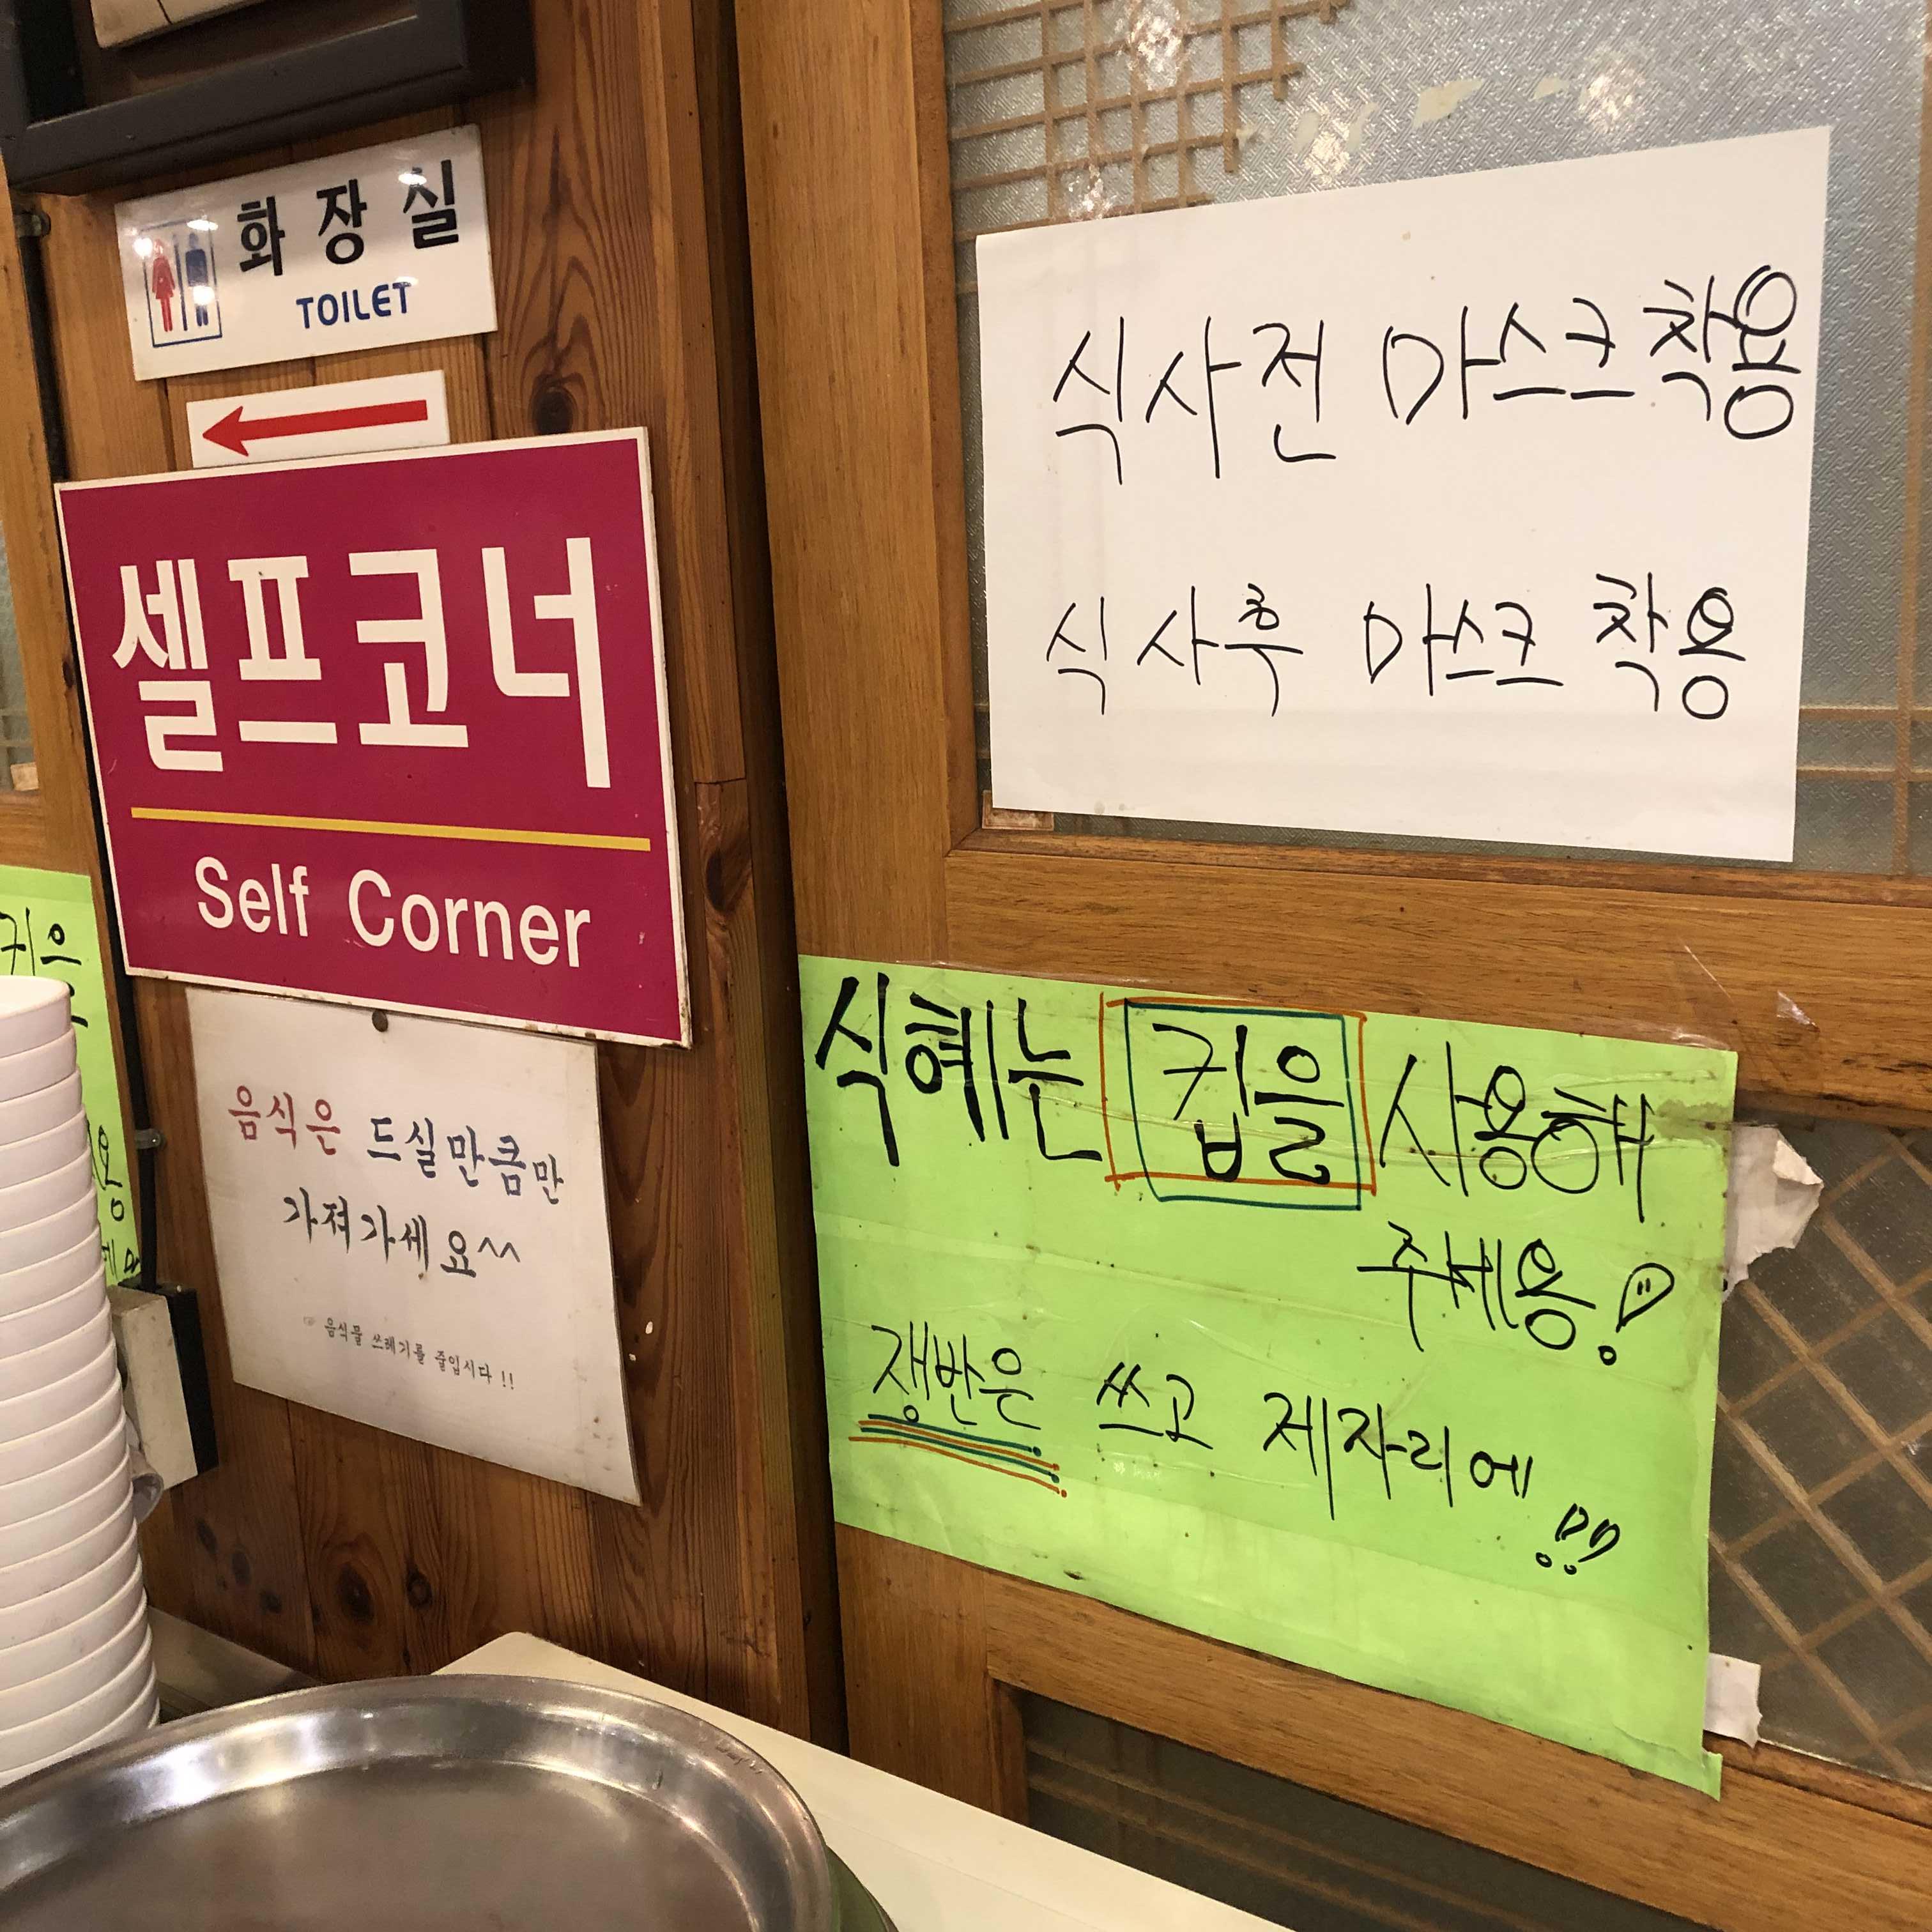 화장실
TOILET
셀프코너
Self Corner
음식은 드실만큼만
가져가세요^^
음식물 쓰레기를 줄입시다 !!
식사전 마스크착용
식사후 마스크 착용
식혜는 컵을 사용해
주세용!
쟁반은 쓰고 제자리에
!!